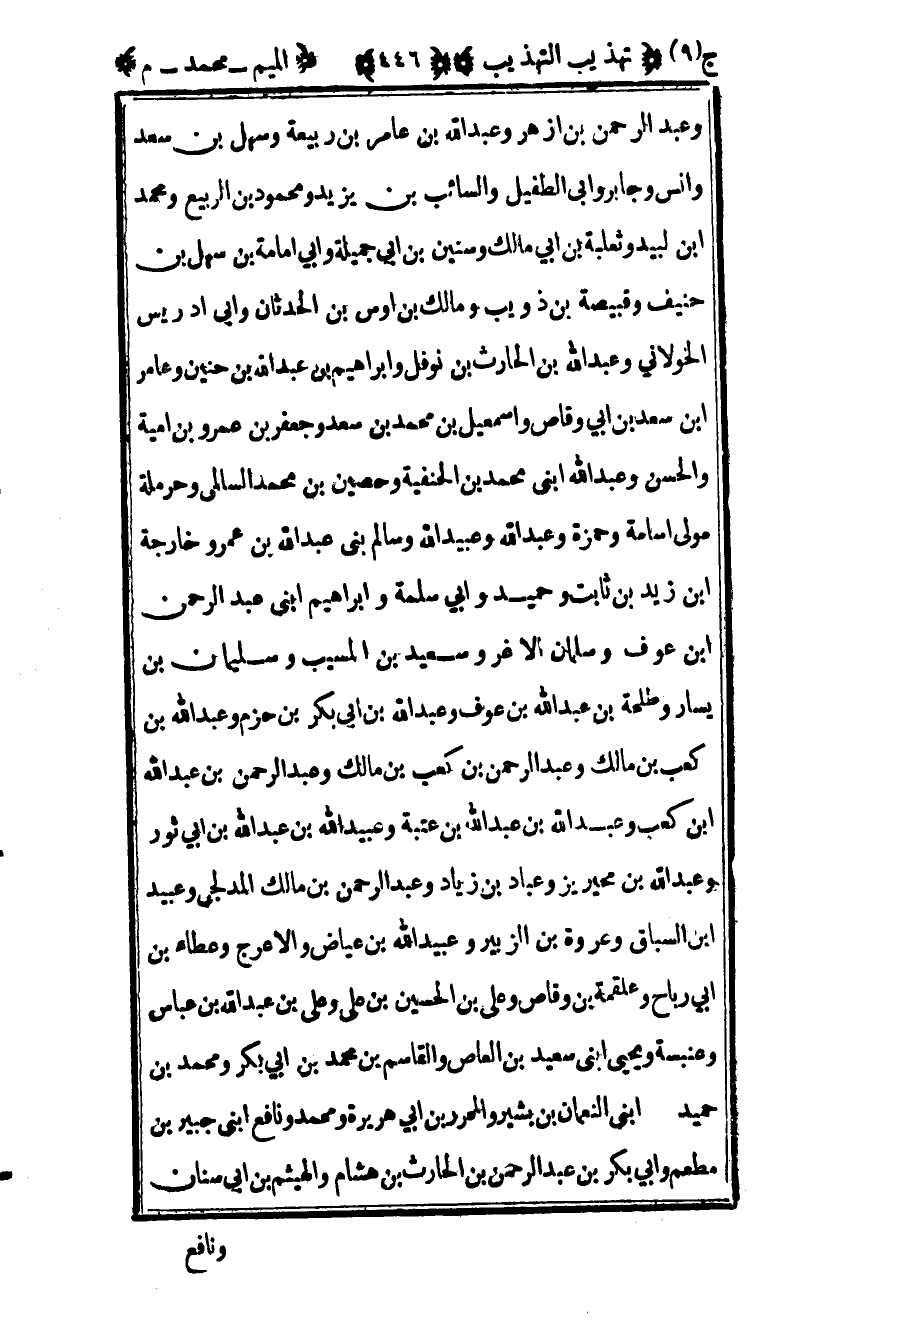 ج(٩) ﴿ تهذيب التهذيب ﴾ ﴿ ٤٤٦ ﴾ ﴿ الميم ـ محمد ـ م ﴾
وعبد الرحمن بن ازهر وعبدالله بن عامر بن ربيعة وسهل بن سعد
وانس وجابر وابي الطفيل والسائب بن يزيد ومحمود بن الربيع ومحمد
ابن لبيد وثعلبة بن ابي مالك وسنين بن ابي جميلة وابي امامة بن سهل بن
حنيف وقبيصة بن ذويب و مالك بن اوس بن الحدثان وابي ادريس
الخولاني وعبدالله بن الحارث بن نوفل وابراهيم بن عبدالله بن حنين وعامر
ابن سعد بن ابي وقاص واسمعيل بن محمد بن سعد وجعفر بن عمرو بن امية
والحسن وعبدالله ابنى محمد بن الحنفية وحصين بن محمد السالمى وحرملة
مولى اسامة وحمزة وعبدالله وعبيدالله وسالم بنى عبدالله بن عمر و خارجة
ابن زيد بن ثابت و حميد و ابي سلمة و ابراهيم ابنى عبد الرحمن
ابن عوف وسلمان الاغر و سعيد بن المسيب و سليمان بن
يسار وطلحة بن عبدالله بن عوف وعبدالله بن ابي بكر بن حزم وعبدالله بن
كعب بن مالك وعبدالرحمن بن كعب بن مالك وعبدالرحمن بن عبدالله
ابن كعب وعبدالله بن عبدالله بن عتبة وعبيدالله بن عبدالله بن ابي ثور
وعبدالله بن محيريز وعباد بن زياد وعبدالرحمن بن مالك المدلجي وعبيد
ابن السباق وعروة بن الزبير و عبيدالله بن عياض والاعرج وعطاء بن
ابي رباح وعلقمة بن وقاص وعلى بن الحسين بن على وعلى بن عبدالله بن عباس
وعنبسة ويحيى ابنى سعيد بن العاص والقاسم بن محمد بن ابي بكر ومحمد بن
حميد ابنى النعمان بن بشير والمحرر بن ابي هريرة ومحمد ونافع ابنى جبير بن
مطعم وابي بكر بن عبدالرحمن بن الحارث بن هشام والهيثم بن ابي سنان
ونافع